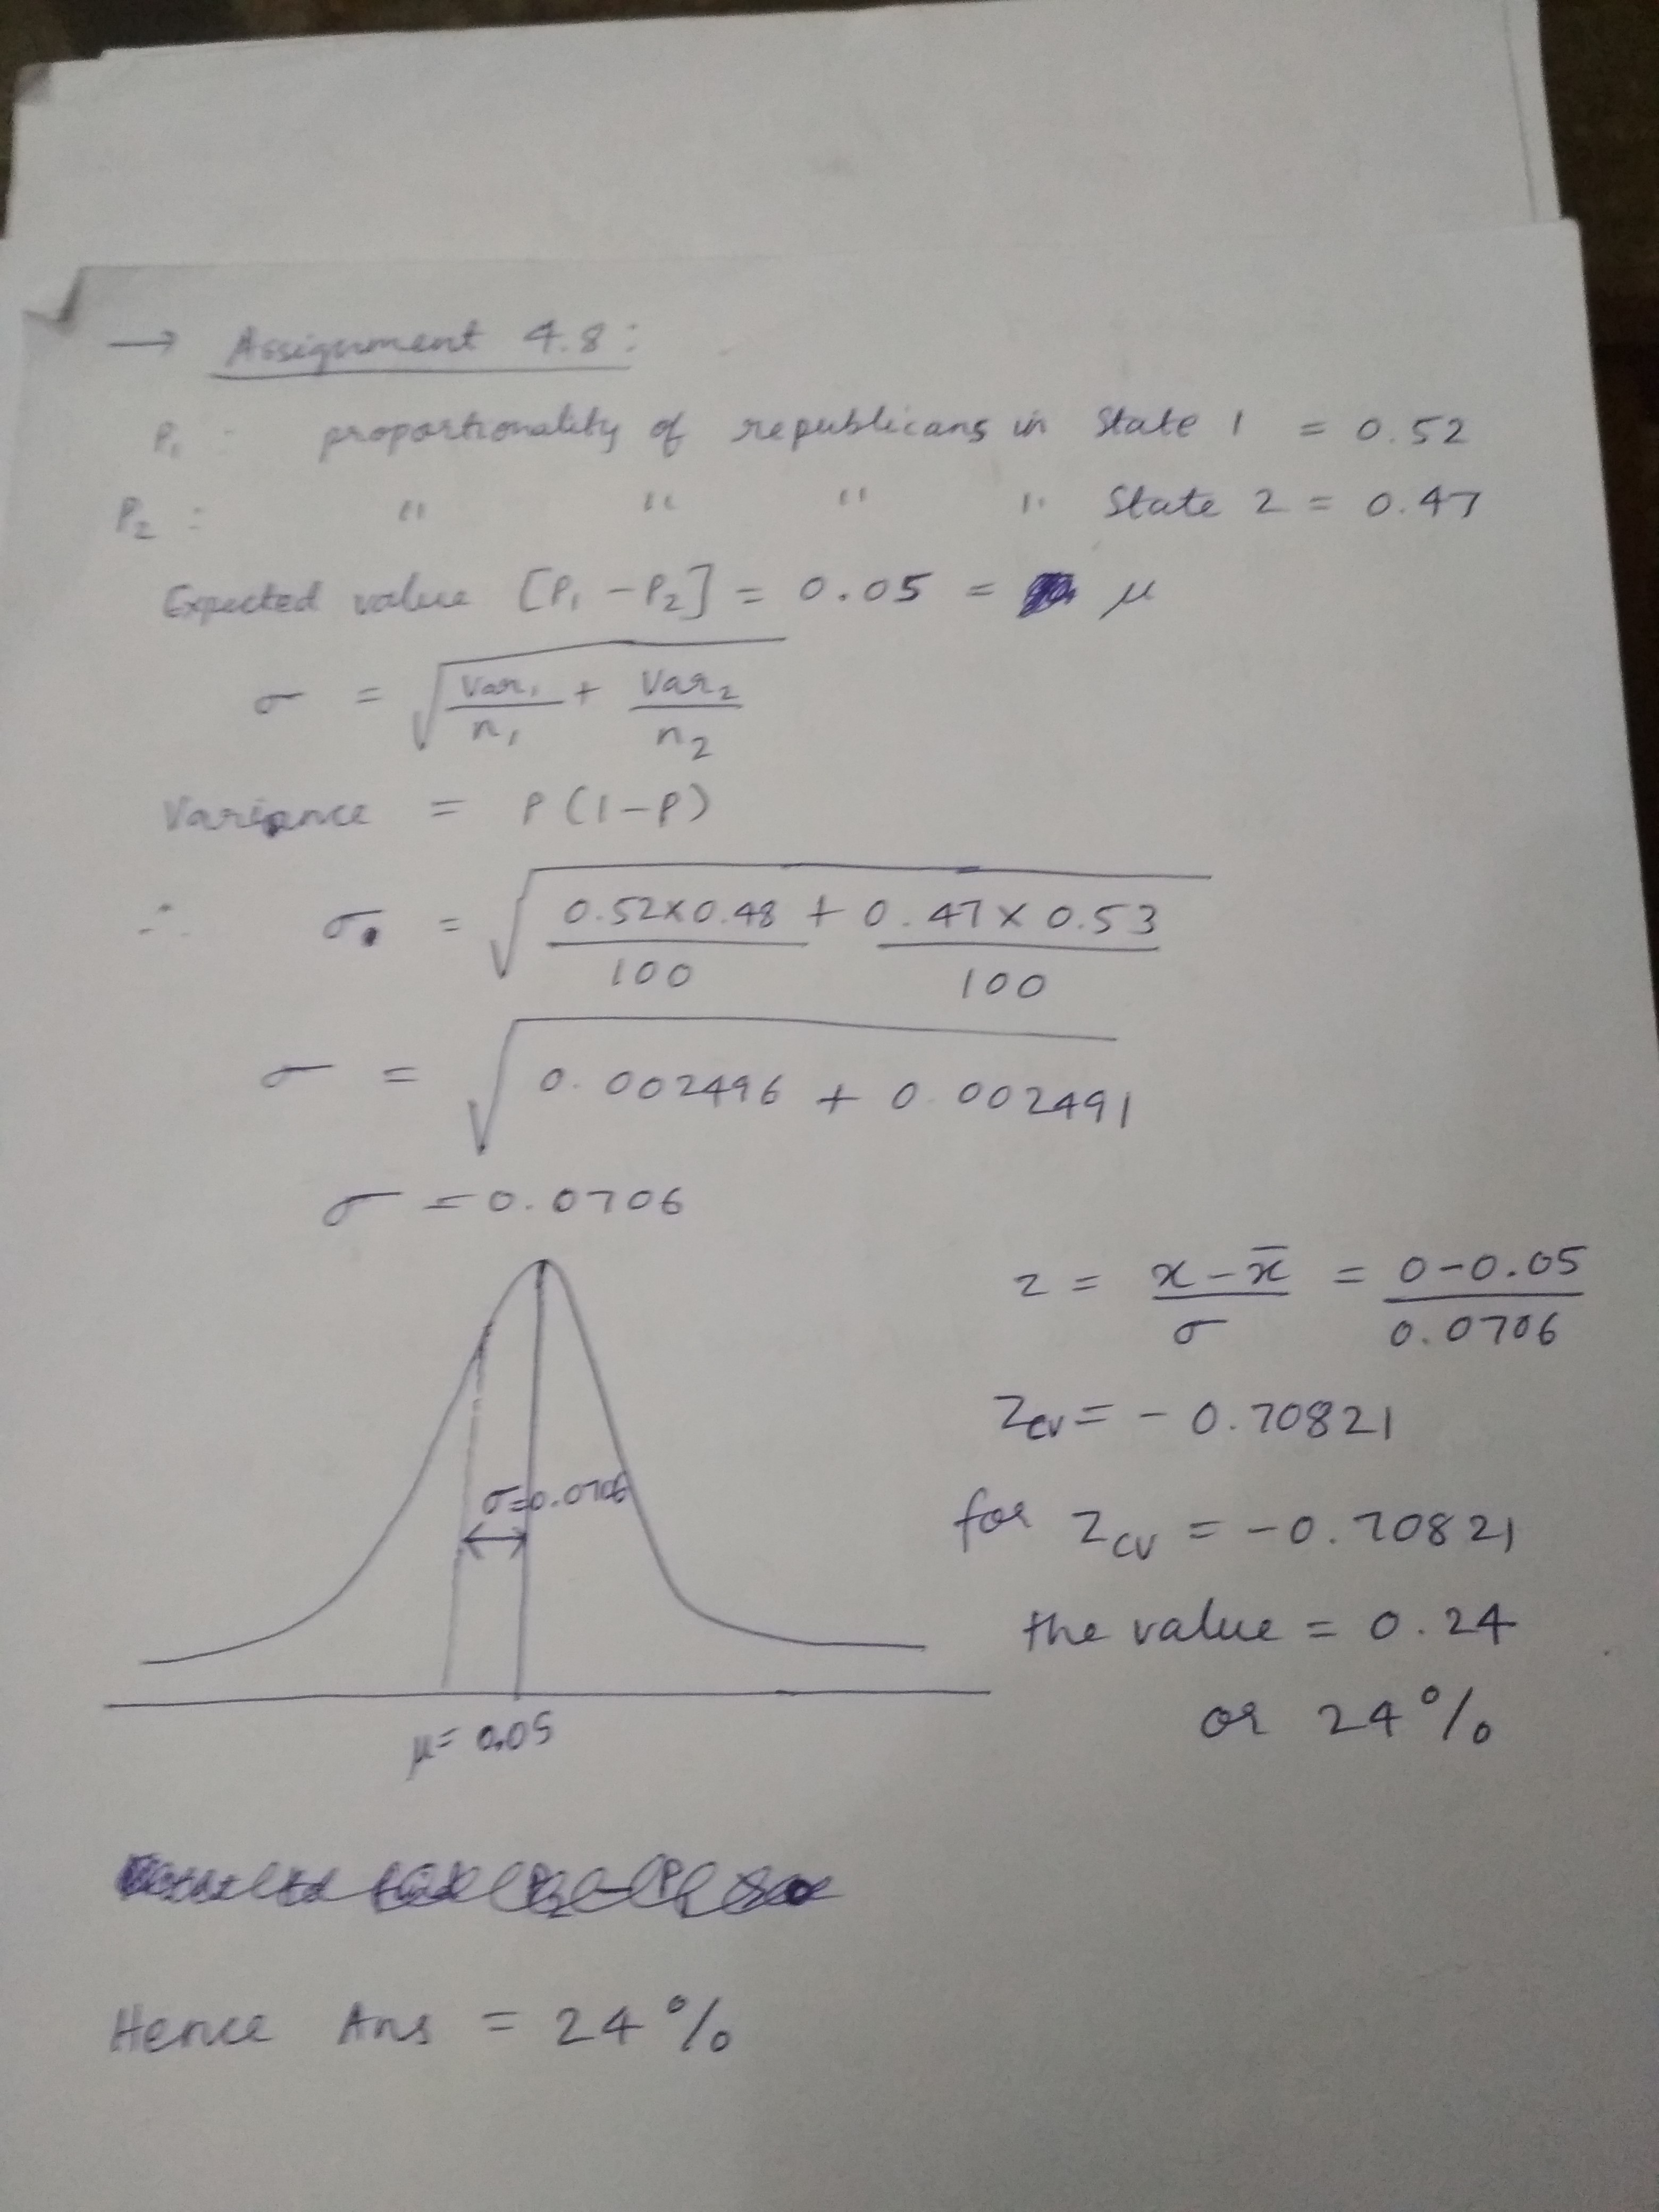 → Assignment 4.8:
P₁ : proportionality of republicans in State 1 = 0.52
P₂ : " " " " State 2 = 0.47
Expected value [P₁ - P₂] = 0.05 = μ
σ = √(Var₁/n₁ + Var₂/n₂)
Variance = P(1-P)
∴ σ = √(0.52×0.48/100 + 0.47×0.53/100)
σ = √(0.002496 + 0.002491)
σ = 0.0706
z = (x - x̄)/σ = (0-0.05)/0.0706
Zcv = - 0.70821
σ=0.0706
for Zcv = -0.70821
the value = 0.24
or 24%
μ= 0.05
Hence Ans = 24%